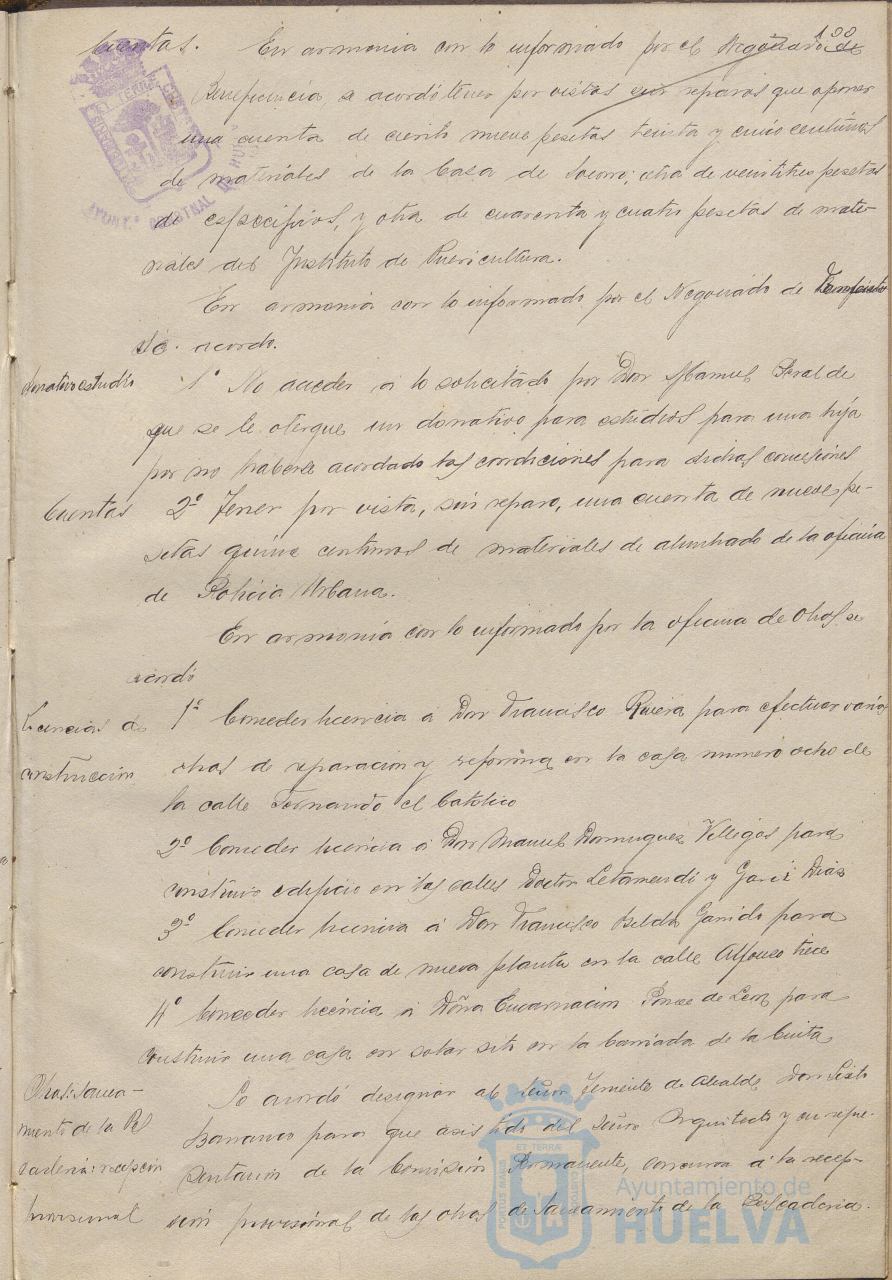 100
Cuentas. En armonia con lo informado por el Negociado de
Beneficencia, se acordó tener por vistas sin reparos que oponer
una cuenta de ciento nueve pesetas treinta y cinco centimos
de materiales de la Casa de Socorro; otra de veintitres pesetas
de especificos, y otra de cuarenta y cuatro pesetas de mate-
riales del Instituto de Puericultura.
En armonia con lo informado por el Negociado de
se acordo.
donativo estudio 1º No acceder a lo solicitado por Don Manuel Peral de
que se le otorgue un donativo para estudios para una hija
por no haberse acordado las condiciones para dichas concesiones
Cuentas 2º Tener por vista, sin reparo, una cuenta de nueve pe-
setas quince centimos de materiales de alumbrado de la oficina
de Policia Urbana.
En armonía con lo informado por la oficina de Obras se
acordó
Licencias de 1º Conceder licencia a Don Francisco Rivera para efectuar varias
construccion obras de reparacion y reforma en la casa numero ocho de
la calle Fernando el Catolico
2º Conceder licencia a Don Manuel Dominguez Villegas para
construir edificio en las calles Doctor Letamendi y Garci Diaz
3º Conceder licencia a Don Francisco Belda Garrido para
construir una casa de nueva planta en la calle Alfonso trece
4º Conceder licencia a Doña Encarnacion Ponce de Leon para
construir una casa en solar sito en la barriada de la Cinta
Obras: sanea- Se acordó designar al señor Teniente de Alcalde Don Sixto
miento de la Pes Barranco para que asistido del señor Arquitecto y en repre-
caderia: recepcion sentacion de la Comision Permanente, concurra a la recep-
provisional cion provisional de las obras de saneamiento de la Pescaderia.
ET TERRA
PORTUS MARIS
Ayuntamiento de
HUELVA